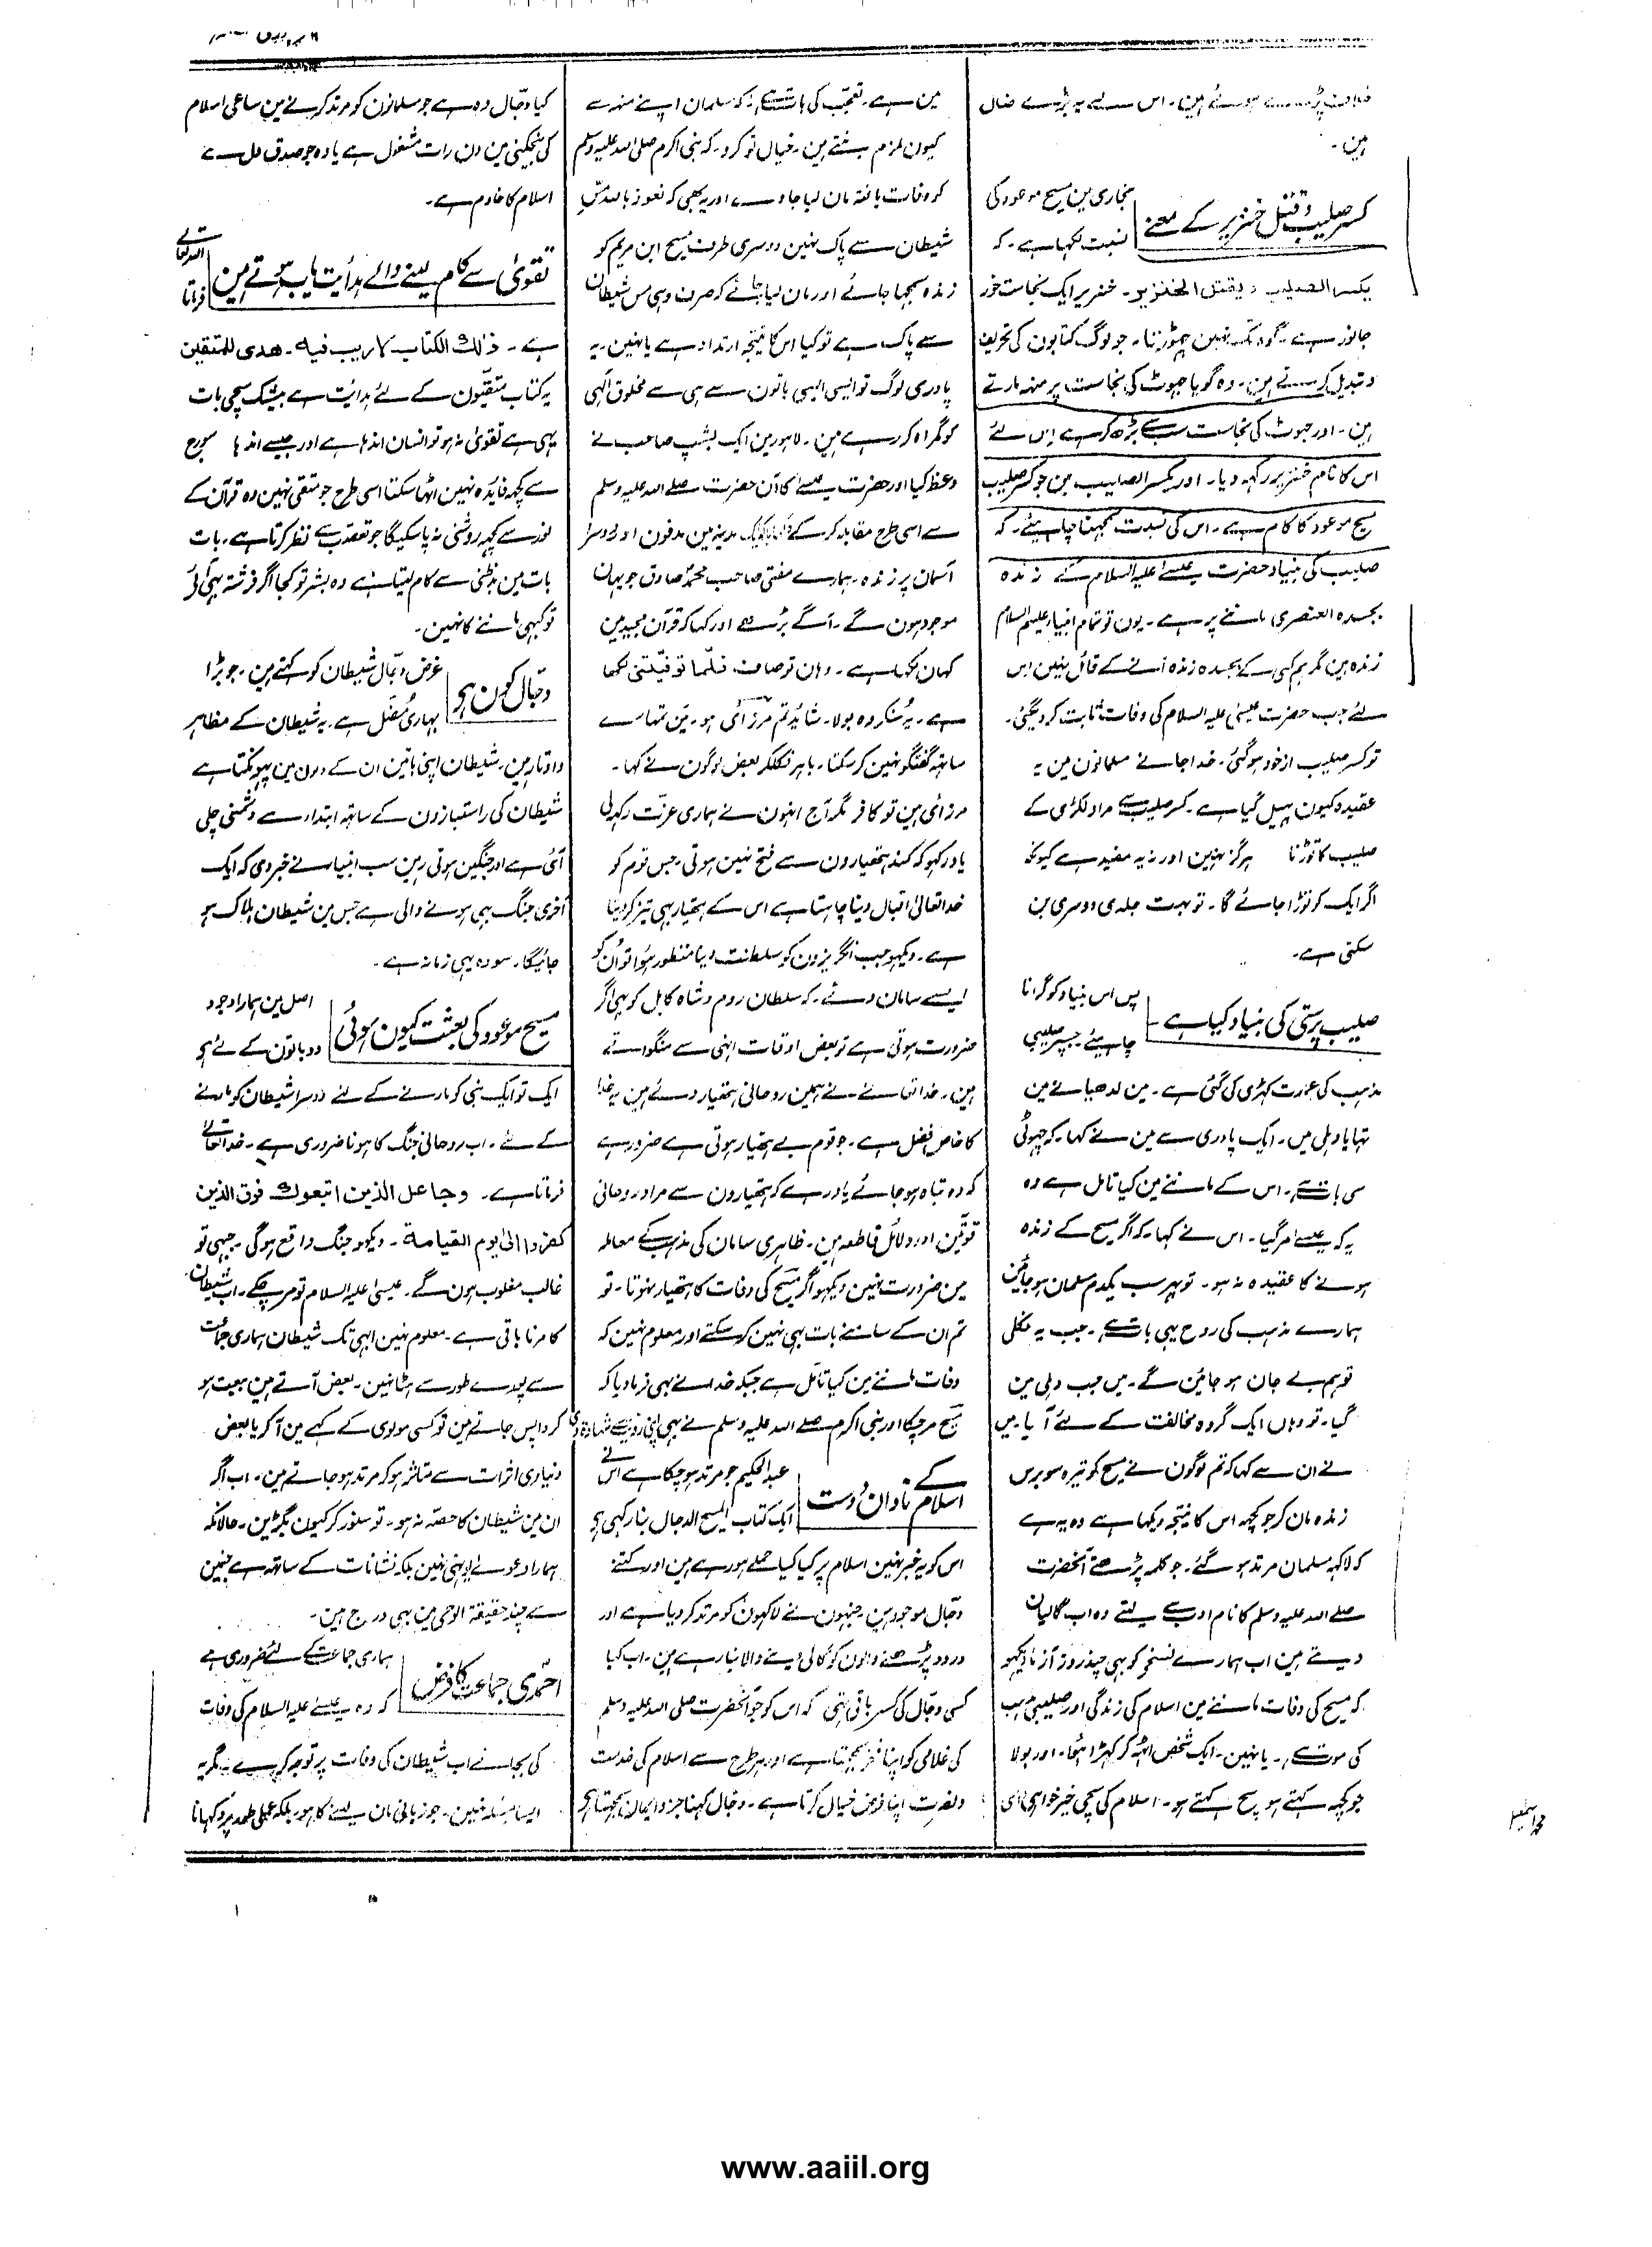 خلاف پڑے ہوئے ہین۔ اس لئے یہ بڑے ضال
ہین۔
کسر صلیب و قتل خنزیر کے معنے
بخاری مین مسیح موعود کی
نسبت لکہا ہے۔ کہ
یکسر الصلیب و یقتل الخنزیر۔ خنزیر ایک نجاست خور
جانور ہے۔ گوہ تک نہین چھوڑتا۔ جو لوگ کتابون کی تحریف
و تبدیل کرتے ہین۔ وہ گویا جہوٹ کی نجاست پر منہ مارتے
ہین۔ اور جہوٹ کی نجاست سب سے بڑھ کر ہے اس لئے
اس کا نام خنزیر رکہہ دیا۔ اور یکسر الصلیب مین جو کسر صلیب
مسیح موعود کا کام ہے۔ اس کی نسبت سمجہنا چاہیئے۔ کہ
صلیب کی بنیاد حضرت عیسےٰ علیہ السلام کے زندہ
بجسدہ العنصری ماننے پر ہے۔ یون تو تمام انبیاء علیہم السلام
زندہ ہین مگر ہم کسی کے بجسدہ زندہ آنے کے قائل نہین اس
لئے جب حضرت عیسیٰ علیہ السلام کی وفات ثابت کر دیگئی۔
تو کسر صلیب از خود ہو گئی۔ خدا جانے مسلمانون مین یہ
عقیدہ کیون پہیل گیا ہے۔ کسر صلیب سے مراد لکڑی کے
صلیب کا توڑنا ہرگز نہین اور نہ یہ مفید ہے کیونکہ
اگر ایک کو توڑا جائے گا۔ تو بہت جلدی دوسری بن
سکتی ہے۔
صلیب پرستی کی بنیاد کیا ہے
پس اس بنیاد کو گرانا
چاہیئے جسپر صلیبی
مذہب کی عمارت کہڑی کی گئی ہے۔ مین لدھیانے مین
تہا یا دہلی مین۔ ایک پادری سے مین نے کہا۔ کہ چہوٹی
سی بات ہے۔ اس کے ماننے مین کیا تامل ہے وہ
یہ کہ عیسےٰ مر گیا۔ اس نے کہا۔ کہ اگر مسیح کے زندہ
ہونے کا عقیدہ نہ ہو۔ تو پہر سب یکدم مسلمان ہو جائین
ہمارے مذہب کی روح یہی بات ہے۔ جب یہ نکلی
تو ہم بے جان ہو جائین گے۔ مین جب دہلی مین
گیا۔ تو وہان ایک گروہ مخالفت کے لئے آیا۔ مین
نے ان سے کہا کہ تم لوگون نے مسیح کو تیرہ سو برس
زندہ مان کر جو کچہہ اس کا نتیجہ دیکہا ہے وہ یہ ہے
کہ لاکہہ مسلمان مرتد ہو گئے۔ جو کلمہ پڑھتے آنحضرت
صلے اللہ علیہ وسلم کا نام ادب سے لیتے وہ اب گالیان
دیتے ہین اب ہمارے نسخہ کو بہی چند روز آزما دیکہو
کہ مسیح کی وفات ماننے مین اسلام کی زندگی اور صلیبی مذہب
کی موت ہے۔ یا نہین۔ ایک شخص اٹہہ کر کہڑا ہوا۔ اور بولا
جو کچہہ کہتے ہو سچ کہتے ہو۔ اسلام کی سچی خیر خواہی اسی
مین ہے۔ تعجب کی بات ہے کہ مسلمان اپنے منہ سے
کیون ملزم بنتے ہین۔ خیال تو کرو۔ کہ نبی اکرم صلی اللہ علیہ وسلم
کو وفات یافتہ مان لیا جاوے اور یہ بھی کہ نعوذ باللہ مس
شیطان سے پاک نہین دوسری طرف مسیح ابن مریم کو
زندہ سمجہا جائے اور مان لیا جائے کہ صرف وہی مس شیطان
سے پاک ہے تو کیا اس کا نتیجہ ارتداد ہے یا نہین۔ یہ
پادری لوگ تو ایسی ایسی باتون سے ہی سے مخلوق الٰہی
کو گمراہ کر رہے ہین۔ لاہور مین ایک بشپ صاحب نے
وعظ کیا اور حضرت عیسےٰ کا آن حضرت صلے اللہ علیہ وسلم
سے اسی طرح مقابلہ کر کے کہ ایک مدینہ مین مدفون اور دوسرا
آسمان پر زندہ۔ ہمارے مفتی صاحب محمد صادق جو یہان
موجود ہون گے۔ آگے بڑھے اور کہا کہ قرآن مجید مین
کہان لکہا ہے۔ وہان تو صاف فلمّا توفّیتنی لکہا
ہے۔ یہ سُنکر وہ بولا۔ شائد تم مرزائی ہو۔ مین تمہارے
ساتہہ گفتگو نہین کر سکتا۔ باہر نکلکر بعض لوگون نے کہا۔
مرزائی ہین تو کافر مگر آج انہون نے ہماری عزت رکہہ لی
یاد رکہو کہ کند ہتھیارون سے فتح نہین ہوتی۔ جس قوم کو
خدا تعالیٰ اقبال دینا چاہتا ہے اس کے ہتھیار بہی تیز کر دیتا
ہے۔ دیکہو جب انگریزون کو سلطنت دینا منظور ہوا تو ان کو
ایسے سامان دئے۔ کہ سلطان روم و شاہ کابل کو بہی اگر
ضرورت ہوتی ہے تو بعض اوقات انہی سے منگواتے
ہین۔ خدا تعالےٰ نے ہمین روحانی ہتھیار دئے ہین یہ خدا
کا خاص فضل ہے۔ جو قوم بے ہتھیار ہوتی ہے ضرور ہے
کہ وہ تباہ ہو جائے یاد رہے کہ ہتھیارون سے مراد روحانی
قوتین اور دلائل قاطعہ ہین۔ ظاہری سامان کی مذہب کے معاملہ
مین ضرورت نہین دیکہو اگر مسیح کی وفات کا ہتھیار نہوتا۔ تو
تم ان کے سامنے بات بہی نہین کر سکتے اور معلوم نہین کہ
وفات ماننے مین کیا تامل ہے جبکہ خدا نے بہی فرما دیا کہ
مسیح مر چکا اور نبی اکرم صلے اللہ علیہ وسلم نے بہی اپنی رویت سے شہادت دی
اسلام کے نادان دوست
عبد الحکیم جو مرتد ہو چکا ہے اس نے
ایک کتاب المسیح الدجال بنا رکہی ہے
اس کو یہ خبر نہین اسلام پر کیا کیا حملے ہو رہے ہین اور کتنے
دجال موجود ہین۔ جنہون نے لاکہون کو مرتد کر دیا ہے اور
درود پڑھنے والون کو گالی دینے والا بنا رہے ہین۔ اب کیا
کسی دجال کی کسر باقی تہی کہ اس کو جو آنحضرت صلی اللہ علیہ وسلم
کی غلامی کو اپنا فخر سمجہتا ہے اور ہر طرح سے اسلام کی خدمت
و نصرت اپنا فرض خیال کرتا ہے۔ دجال کہنا جزو ایمان سمجہتا ہے
کیا دجال وہ ہے جو مسلمانون کو مرتد کرنے مین ساعی اسلام
کی بیخکنی مین دن رات مشغول ہے یا وہ جو صدق دل سے
اسلام کا خادم ہے۔
تقویٰ سے کام لینے والے ہدایت یاب ہوتے ہین
اللہ تعالےٰ
فرماتا
ہے۔ ذٰلک الکتاب لا ریب فیہ۔ ھدی للمتقین
یہ کتاب متقیون کے لئے ہدایت ہے بیشک سچی بات
یہی ہے تقویٰ نہ ہو تو انسان اندہا ہے اور جیسے اندہا سورج
سے کچہہ فایدہ نہین اٹہا سکتا اسی طرح جو متقی نہین وہ قرآن کے
نور سے کچہہ روشنی نہ پا سکیگا جو تعصب سے نظر کرتا ہے۔ بات
بات مین بدظنی سے کام لیتا ہے وہ بشر تو کجا اگر فرشتہ بہی آئے
تو کبہی ماننے کا نہین۔
دجّال کون ہے
غرض دجّال شیطان کو کہتے ہین۔ جو بڑا
بہاری مُضل ہے۔ یہ شیطان کے مظاہر
و اوتار ہین۔ شیطان اپنی باتین ان کے دلون مین پہونکتا ہے
شیطان کی راستبازون کے ساتہہ ابتداء سے دشمنی چلی
آئی ہے اور جنگین ہوتی رہین سب انبیاء نے خبر دی کہ ایک
آخری جنگ بہی ہونے والی ہے جس مین شیطان ہلاک ہو
جائیگا۔ سو وہ یہی زمانہ ہے۔
مسیح موعود کی بعثت کیون ہوئی
اصل مین ہمارا وجود
دو باتون کے لئے ہے
ایک تو ایک نبی کو مارنے کے لئے دوسرا شیطان کو مارنے
کے لئے۔ اب روحانی جنگ کا ہونا ضروری ہے۔ خدا تعالےٰ
فرماتا ہے۔ وجاعل الذین اتبعوک فوق الذین
کفروا الیٰ یوم القیامة۔ دیکہو جنگ واقع ہوگی۔ جبہی تو
غالب مغلوب ہون گے۔ عیسیٰ علیہ السلام تو مر چکے۔ اب شیطان
کا مرنا باقی ہے۔ معلوم نہین ابہی تک شیطان ہماری جماعت
سے پورے طور سے ہٹا نہین۔ بعض آتے ہین بیعت ہو
کر واپس جاتے ہین تو کسی مولوی کے کہے مین آکر یا بعض
دنیاوی اثرات سے متاثر ہو کر مرتد ہو جاتے ہین۔ اب اگر
ان مین شیطان کا حصہ نہ ہو۔ تو سنور کر کیون بگڑین۔ حالانکہ
ہمارا دعوےٰ یونہی نہین بلکہ نشانات کے ساتہہ ہے جنمین
سے چند حقیقة الوحی مین بہی درج ہین۔
احمدی جماعت کا فرض
ہماری جماعت کے لئے ضروری ہے
کہ وہ عیسےٰ علیہ السلام کی وفات
کی بجائے اب شیطان کی وفات پر توجہ کرے۔ مگر یہ
ایسا مسئلہ نہین۔ جو زبانی مان لینے کا ہو۔ بلکہ عملی طور پر دکہانا
www.aaiil.org